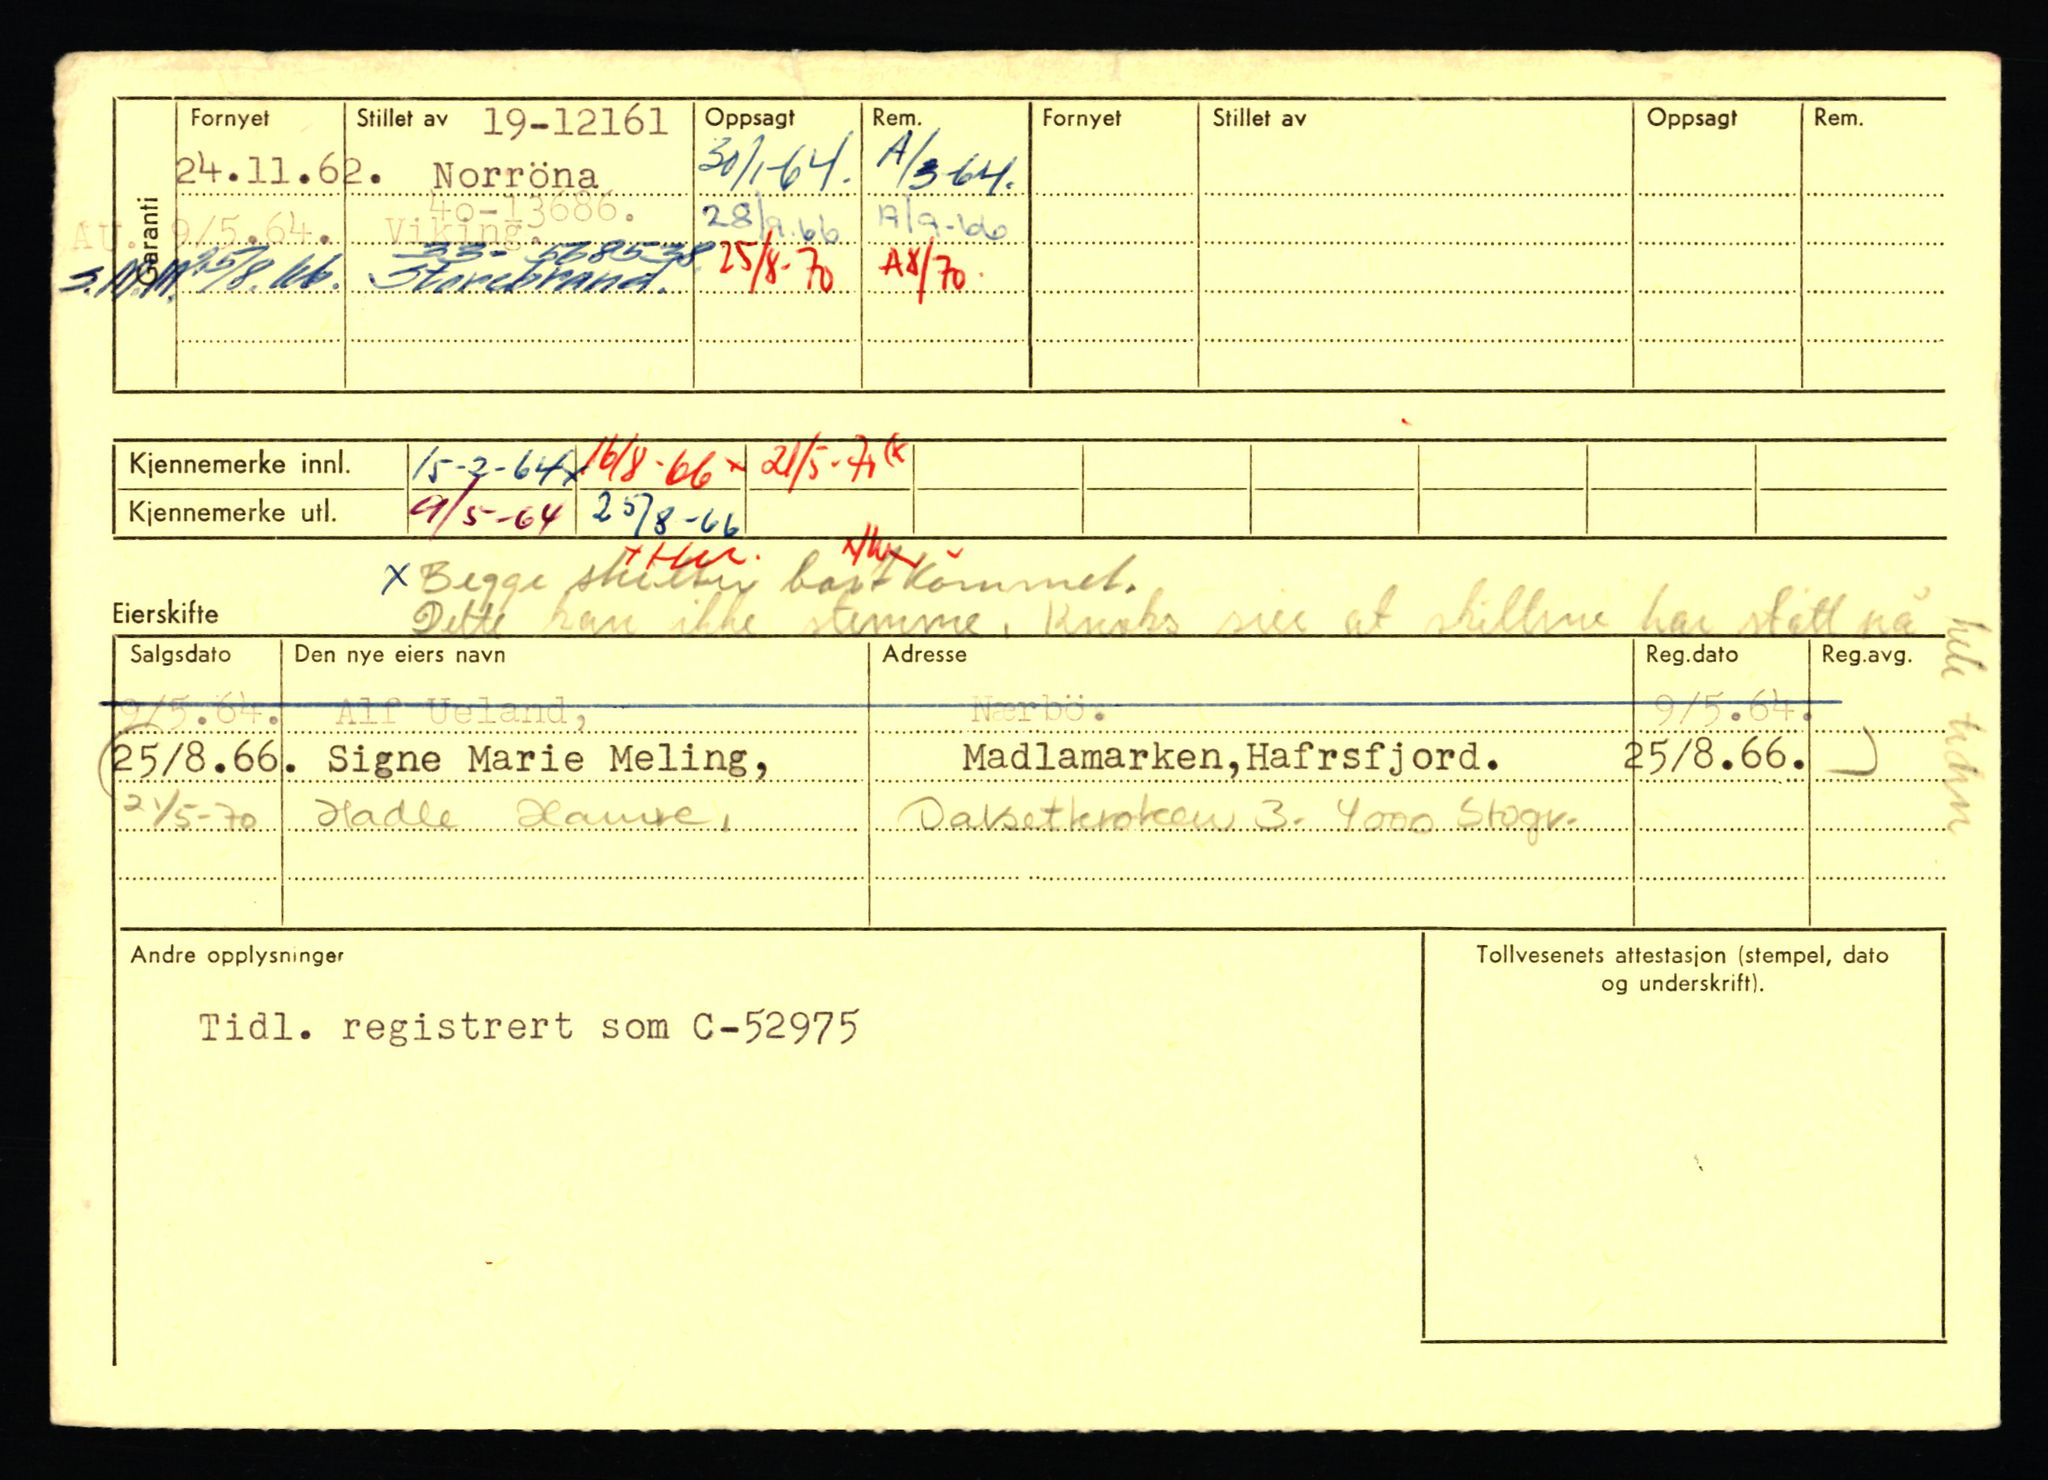 Garanti
Fornyet Stillet av 19-12161 Oppsagt Rem. Fornyet Stillet av Oppsagt Rem.
24.11.62. Norröna 30/1-64. A/3-64.
40-13686.
AU. 9/5.64. Viking. 28/9.66 A/9-66
33-568538.
S.M.M. 25/8.66. Storebrand. 25/8-70 A8/70.
Kjennemerke innl. 15-2-64x 16/8-66 x 21/5-70
Kjennemerke utl. 9/5-64 25/8-66
x Begge skilter bortkommet.
Eierskifte Dette kan ikke stemme. sier at skiltene har stått på
hele tiden
Salgsdato Den nye eiers navn Adresse Reg.dato Reg.avg.
9/5.64. Alf Ueland, Nærbö. 9/5.64.
25/8.66. Signe Marie Meling, Madlamarken,Hafrsfjord. 25/8.66.
21/5-70 Hadle 3. 4000
Andre opplysninger Tollvesenets attestasjon (stempel, dato
og underskrift).
Tidl. registrert som C-52975